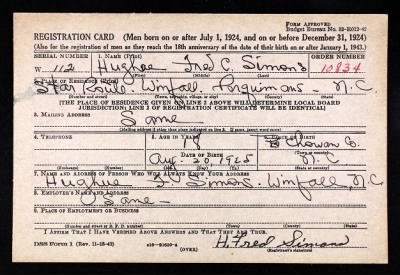 FORM APPROVED
Budget Bureau No. 33-R012-43
REGISTRATION CARD (Men born on or after July 1, 1924, and on or before December 31, 1924)
(Also for the registration of men as they reach the 18th anniversary of the date of their birth on or after January 1, 1943.)
SERIAL NUMBER 1. NAME (Print) ORDER NUMBER
W 112 Hughue Fred C. Simons 10834
2. PLACE OF RESIDENCE (Print)
Star Route. Winfall. Perquimans. N.C.
[THE PLACE OF RESIDENCE GIVEN ON LINE 2 ABOVE WILL DETERMINE LOCAL BOARD
JURISDICTION; LINE 2 OF REGISTRATION CERTIFICATE WILL BE IDENTICAL]
3. MAILING ADDRESS
Same
[Mailing address if other than place indicated on line 2. If same, insert word same]
4. TELEPHONE 5. AGE IN YEARS 6. PLACE OF BIRTH
18 Chowan Co.
DATE OF BIRTH
Aug. 20, 1925 N.C.
7. NAME AND ADDRESS OF PERSON WHO WILL ALWAYS KNOW YOUR ADDRESS
Hughue Simons. Winfall, N.C
8. EMPLOYER'S NAME AND ADDRESS
Same
9. PLACE OF EMPLOYMENT OR BUSINESS
(Number and street or R. F. D. number) (Town) (County) (State)
I AFFIRM THAT I HAVE VERIFIED ABOVE ANSWERS AND THAT THEY ARE TRUE.
DSS Form 1 (Rev. 11-16-42) (OVER) H. Fred Simons